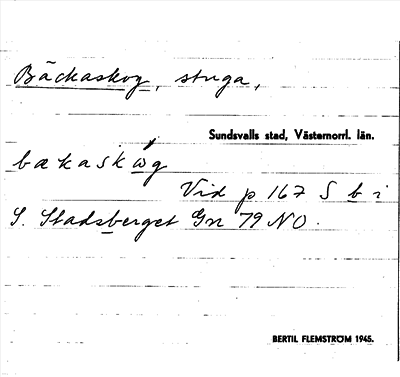 Bäckaskog, stuga,
Sundsvalls stad, Västernorrl. län.
bækaskωg
Vid p 167 S b i
S. Stadsberget Gn 79 NO.
BERTIL FLEMSTRÖM 1945.